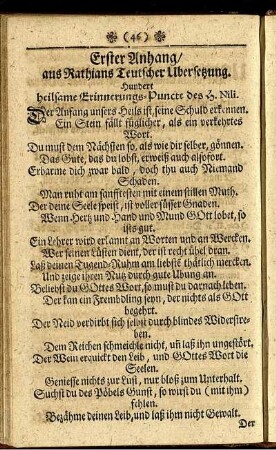 (46)
Erster Anhang/
aus Rathians Teutscher Ubersetzung.
Hundert
heilsame Erinnerungs-Puncte des H. Nili.
Der Anfang unsers Heils ist, seine Schuld erkennen.
Ein Stein fällt füglicher, als ein verkehrtes
Wort.
Du must dem Nächsten so, als wie dir selber, gönnen.
Das Gute, das du lobst, erweiß auch alsofort.
Erbarme dich zwar bald, doch thu auch Niemand
Schaden.
Man ruht am sanfftesten mit einem stillen Muth.
Der deine Seele speist, ist voller süsser Gnaden.
Wenn Hertz und Hand und Mund GOtt lobet, so
ists gut.
Ein Lehrer wird erkannt an Worten und an Wercken.
Wer seinen Lüsten dient, der ist recht übel dran.
Laß deinen Tugend-Ruhm am liebste täglich mercken.
Und zeige ihren Nutz durch gute Ubung an.
Beliebst du GOttes Wort, so must du darnach leben.
Der kan ein Frembdling seyn, der nichts als GOtt
begehrt.
Der Neid verdirbt sich selbst durch blindes Widerstre-
ben.
Dem Reichen schmeichle nicht, uñ laß ihn ungestört.
Der Wein erquickt den Leib, und GOttes Wort die
Seelen.
Geniesse nichts zur Lust, nur bloß zum Unterhalt.
Suchst du des Pöbels Gunst, so wirst du (mit ihm)
fehlen.
Bezähme deinen Leib, und laß ihm nicht Gewalt.
Der